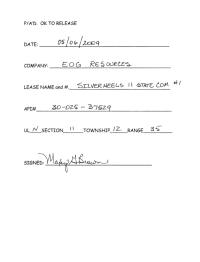 P/A'D. OK TO RELEASE
DATE: 05/06/2009
COMPANY: EOG RESOURCES
LEASE NAME and #. SILVERHEELS 11 STATE COM #1
API# 30-025-37529
UL N SECTION 11 TOWNSHIP 12 RANGE 35
SIGNED: